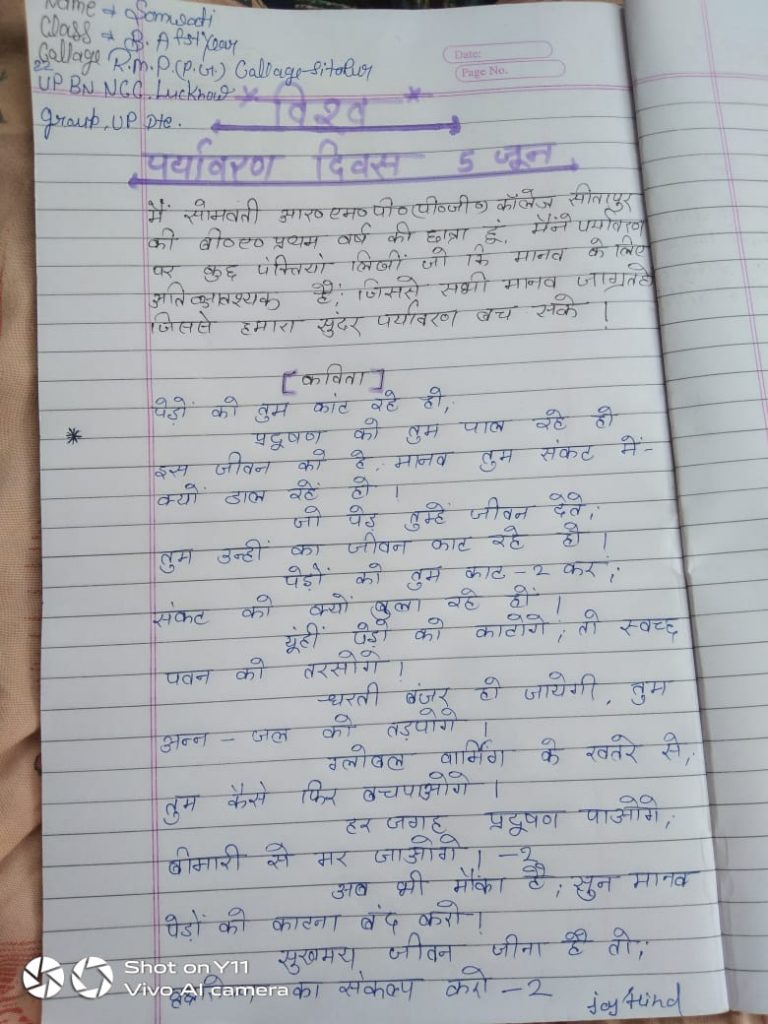 Name → Somwati
Class → B. A fst year
Callage R.M.P.(P.G.) Callage-sitapur
UP BN NCC. Lucknow
Group, UP Dte.
Date:
Page No.
* विश्व *
पर्यावरण दिवस 5 जून
मैं सोमवती आर०एम०पी०(पी०जी०) कॉलेज सीतापुर
की बी०ए० प्रथम वर्ष की छात्रा हूं, मैंने पर्यावरण
पर कुछ पंक्तियां लिखीं जो कि मानव के लिए
अति आवश्यक हैं; जिससे सभी मानव जाग्रत हो
जिससे हमारा सुंदर पर्यावरण बच सके !
[कविता]
पेड़ों को तुम कांट रहे हो,
* प्रदूषण को तुम पाल रहे हो
इस जीवन को हे, मानव तुम संकट में-
क्यों डाल रहें हो ।
जो पेड़ तुम्हें जीवन देते;
तुम उन्हीं का जीवन काट रहे हो ।
पेड़ों को तुम काट-2 कर;
संकट को क्यों बुला रहे हों ।
यूंहीं पेड़ो को काटोगे; तो स्वच्छ
पवन को तरसोगे ।
धरती बंजर हो जायेगी, तुम
अन्न - जल को तड़पोगे ।
ग्लोबल वार्मिंग के खतरे से;
तुम कैसे फिर बचपाओगे ।
हर जगह प्रदूषण पाओगे;
बीमारी से मर जाओगे । -2
अब भी मौका है; सुन मानव
पेड़ों को काटना बंद करो ।
सुखमय जीवन जीना है तो;
का संकल्प करो -2
joy Hind
Shot on Y11
Vivo AI camera